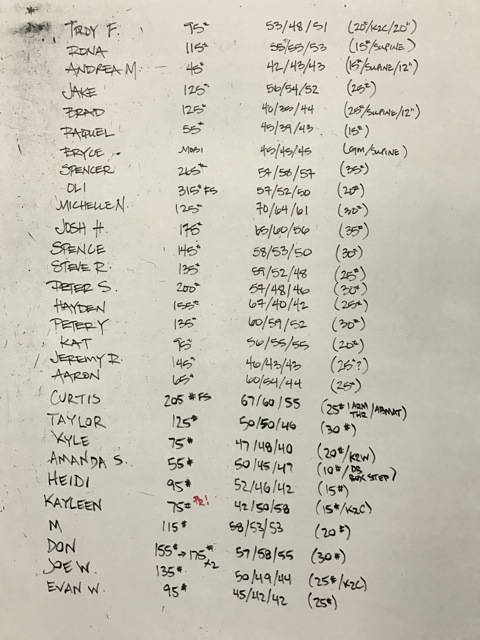 TROY F. 95# 53/48/51 (20#/K2C/20")
RONA 115# 55/55/53 (15#/SUPINE)
ANDREA M. 45# 42/43/43 (15#/SUPINE/12")
JAKE 125# 56/54/52 (25#)
BRAD 125# 40/35/44 (25#/SUPINE/12")
RAQUEL 55# 45/39/43 (15#)
BRYCE MOBI 45/45/45 (GM/SUPINE)
SPENCER 265# 57/58/57 (35#)
OLI 315# FS 57/52/50 (20#)
MICHELLE N. 125# 70/64/61 (30#)
JOSH H. 175# 65/60/56 (35#)
SPENCE 145# 58/53/50 (30#)
STEVE R. 135# 59/52/48 (25#)
PETER S. 200# 57/48/46 (30#)
HAYDEN 155# 67/40/42 (25#)
PETER Y 135# 60/59/52 (30#)
KAT 95# 56/55/55 (20#)
JEREMY R. 145# 46/43/43 (25#?)
AARON 65# 60/54/44 (25#)
CURTIS 205# FS 67/60/55 (25#/ARM THR/ABMAT)
TAYLOR 125# 50/50/46 (30#)
KYLE 75# 47/48/40 (20#/K2W)
AMANDA S. 55# 50/45/47 (10#/DB BOX STEP)
HEIDI 95# 52/46/42 (15#)
KAYLEEN 75# PR! 42/50/58 (15#/K2C)
M 115# 58/53/53 (20#)
DON 155# → 175# x2 57/58/55 (30#)
JOE W. 135# 50/49/44 (25#/K2C)
EVAN W. 95# 45/42/42 (25#)